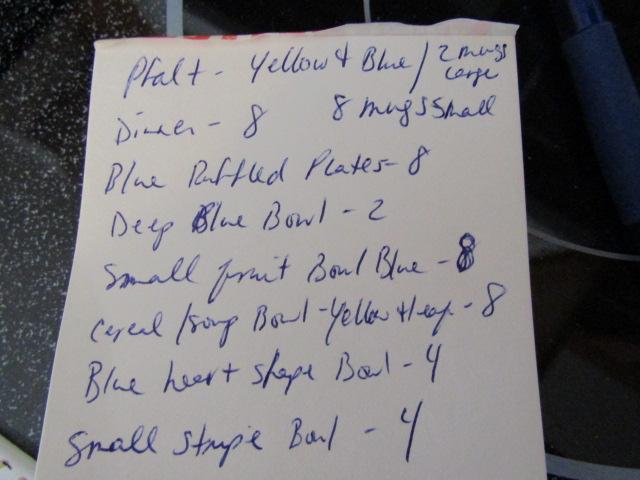 Pfalt - Yellow & Blue / 2 mugs large
Dinner - 8 8 mugs small
Blue Ruffled Plates - 8
Deep Blue Bowl - 2
Small fruit Bowl Blue - 8
Cereal / soup Bowl - Yellow & - 8
Blue heart shape Bowl - 4
Small stripe Bowl - 4